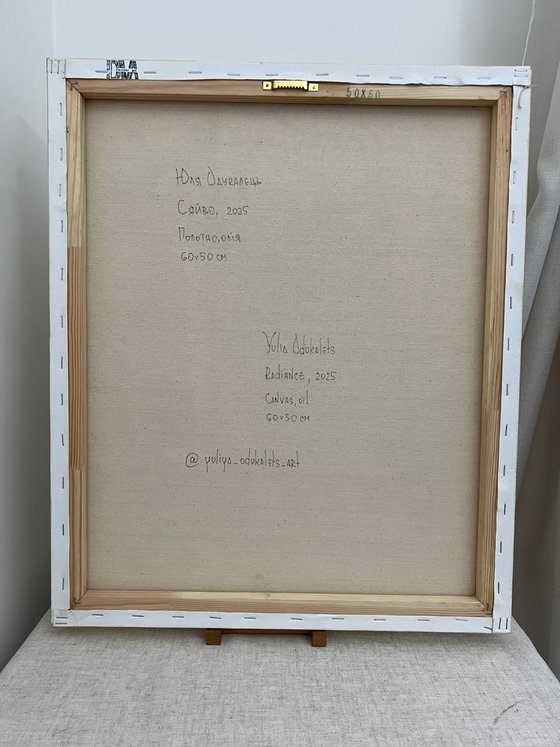 50X60
Юля Одукалець
Сяйво, 2025
Полотно, олія
60x50 см
Yulia Odukalets
Radiance, 2025
Canvas, oil
60x50 cm
@ yuliya_odukalets_art